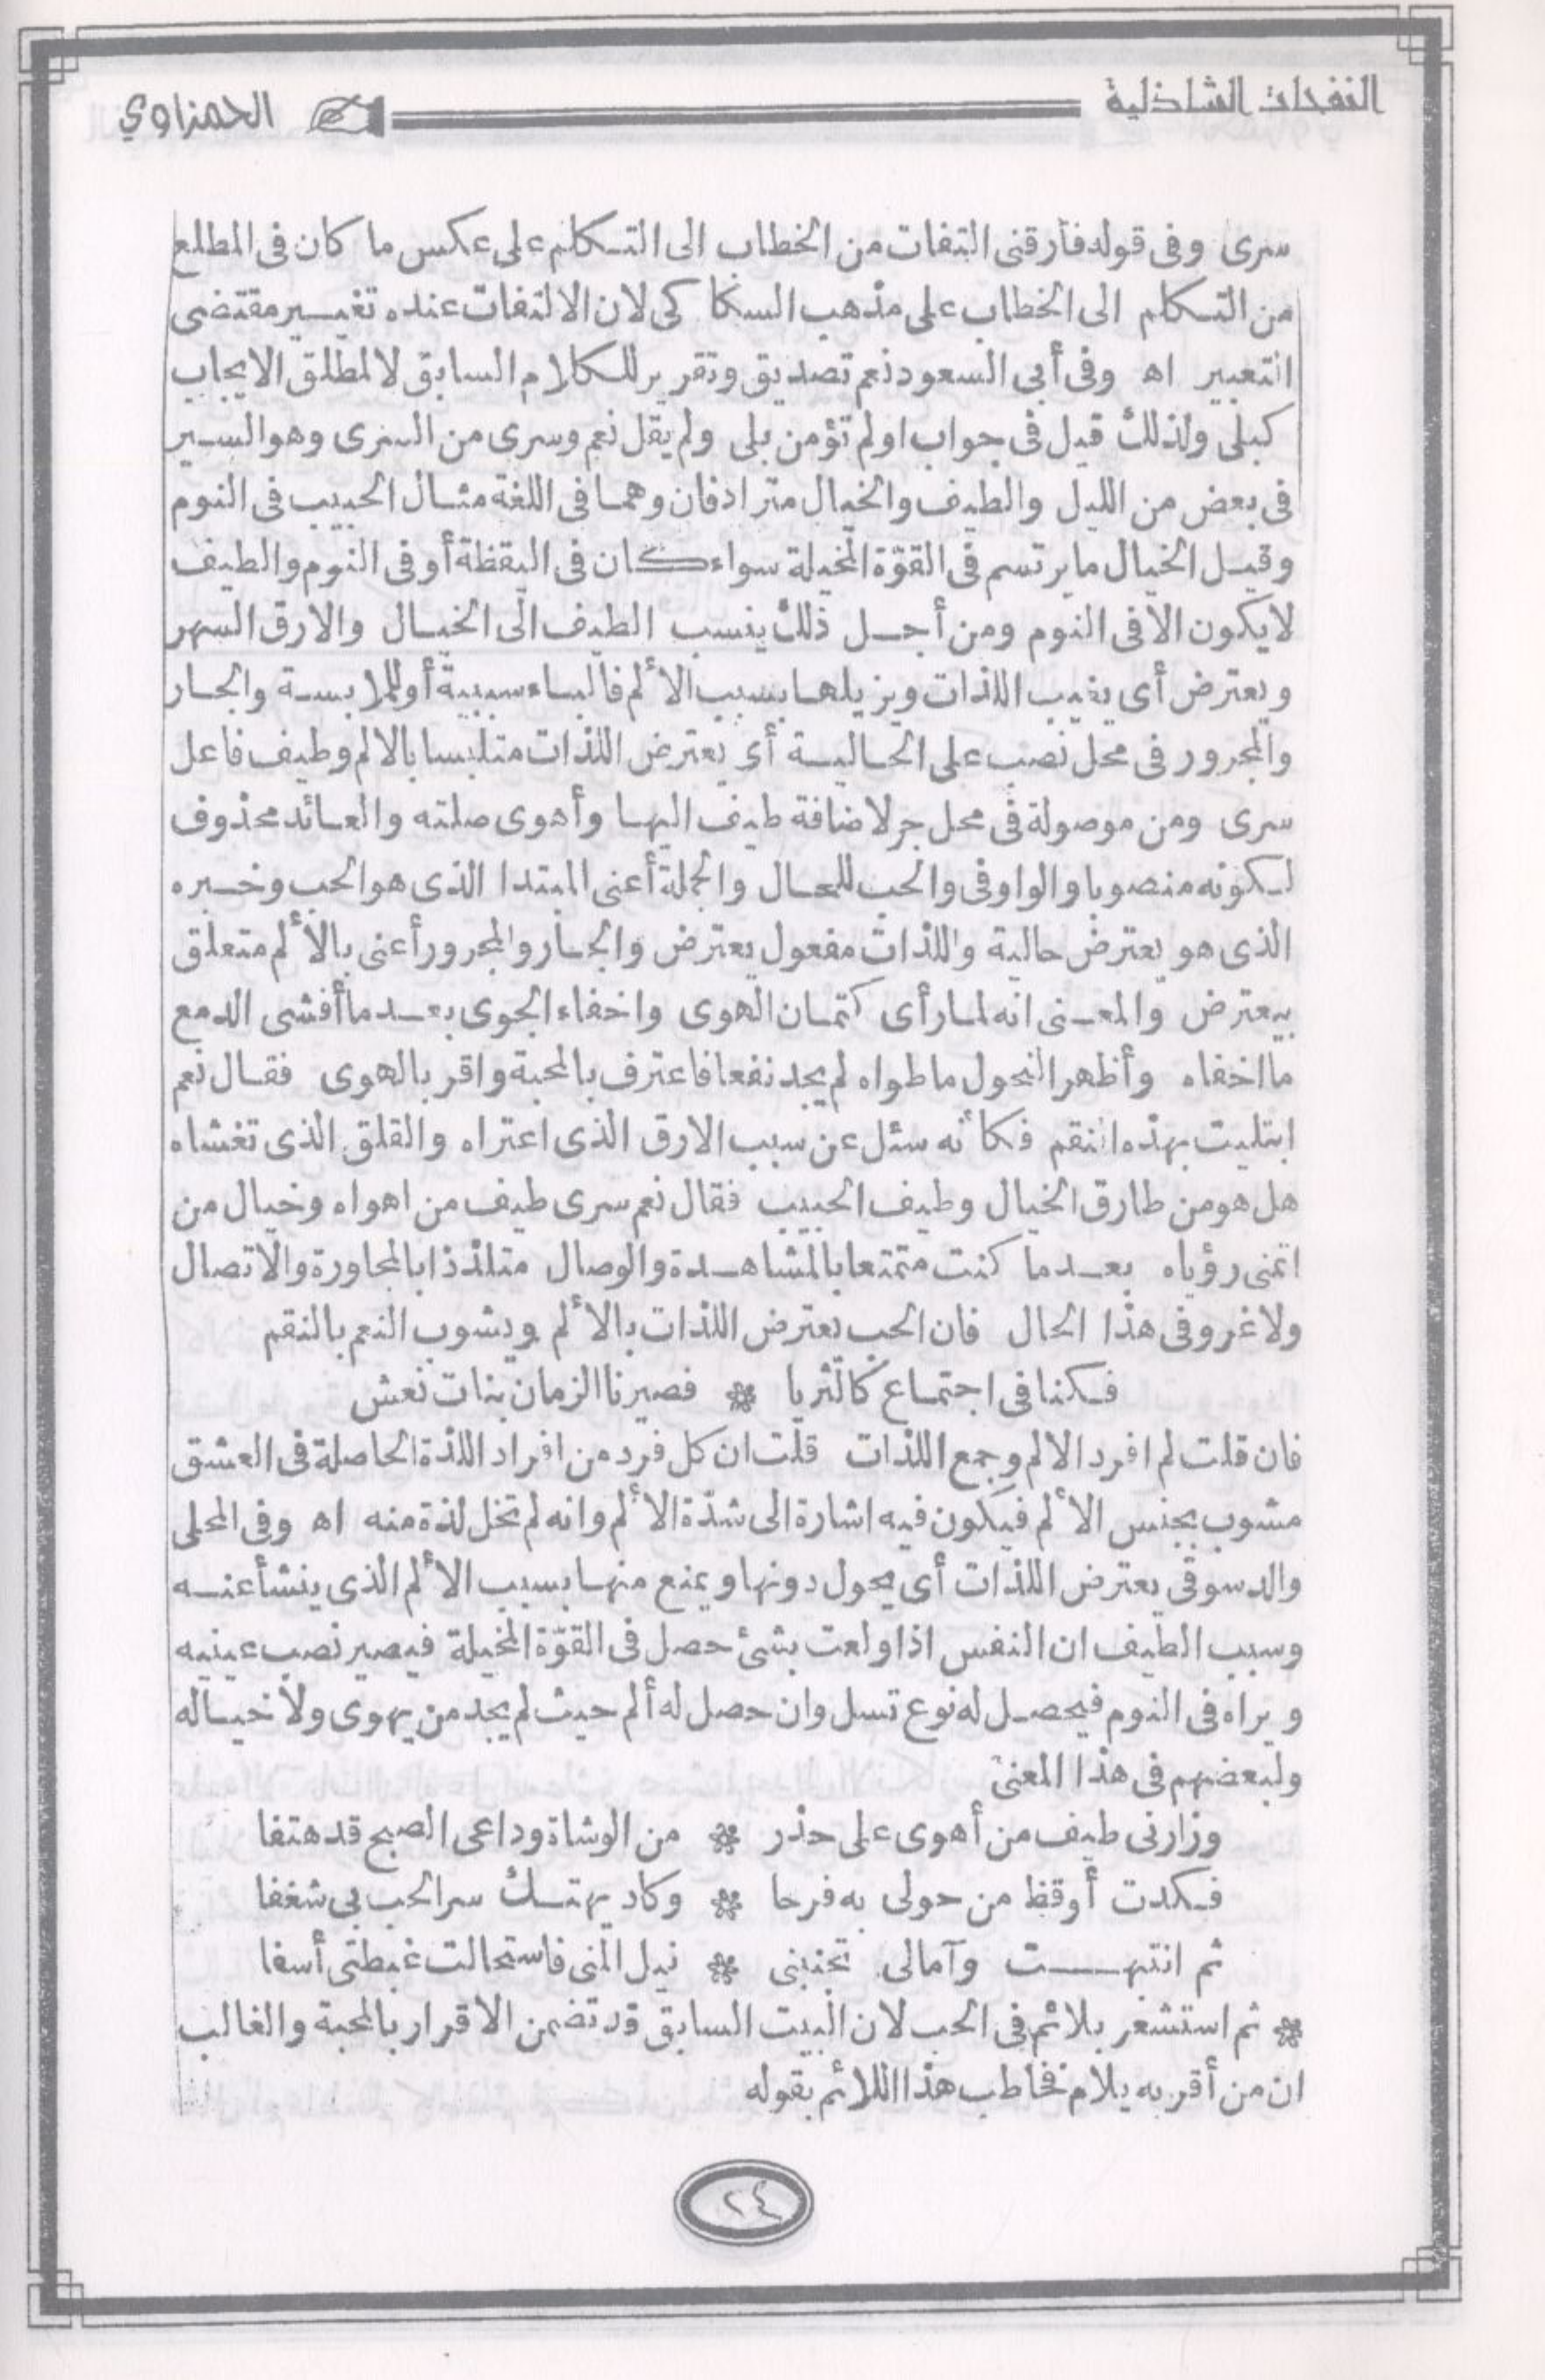 النفحات الشاذلية
الحمزاوي
سرى وفى قوله فأرقنى التفات من الخطاب الى التكلم على عكس ما كان فى المطلع
من التكلم الى الخطاب على مذهب السكاكى لان الالتفات عنده تغيير مقتضى
التعبير اه وفى أبى السعود نعم تصديق وتقرير للكلام السابق لا لمطلق الايجاب
كبلى ولذلك قيل فى جواب اولم تؤمن بلى ولم يقل نعم وسرى من السرى وهو السير
فى بعض من الليل والطيف والخيال مترادفان وهما فى اللغة مثال الحبيب فى النوم
وقيل الخيال ما يرتسم فى القوّة المخيلة سواء كان فى اليقظة أو فى النوم والطيف
لا يكون الا فى النوم ومن أجل ذلك ينسب الطيف الى الخيال والارق السهر
ويعترض أى يغيب اللذات ويزيلها بسبب الألم فالباء سببية أو للملابسة والجار
والمجرور فى محل نصب على الحالية أى يعترض اللذات متلبسا بالالم وطيف فاعل
سرى ومن موصولة فى محل جر لاضافة طيف اليها وأهوى صلته والعائد محذوف
لكونه منصوبا والواو فى والحب للحال والجملة أعنى المبتدا الذى هو الحب وخبره
الذى هو يعترض حالية واللذات مفعول يعترض والجار والمجرور أعنى بالألم متعلق
بيعترض والمعنى انه لما رأى كتمان الهوى واخفاء الجوى بعد ما أفشى الدمع
ما اخفاه وأظهر النحول ما طواه لم يجد نفعا فاعترف بالمحبة واقر بالهوى فقال نعم
ابتليت بهذه النقم فكأنه سئل عن سبب الارق الذى اعتراه والقلق الذى تغشاه
هل هو من طارق الخيال وطيف الحبيب فقال نعم سرى طيف من اهواه وخيال من
اتمنى رؤياه بعد ما كنت متمتعا بالمشاهدة والوصال متلذذا بالمجاورة والاتصال
ولا غرو فى هذا الحال فان الحب يعترض اللذات بالألم ويشوب النعم بالنقم
فكنا فى اجتماع كالثريا * فصيرنا الزمان بنات نعش
فان قلت لم افرد الالم وجمع اللذات قلت ان كل فرد من افراد اللذة الحاصلة فى العشق
مشوب بجنس الألم فيكون فيه اشارة الى شدّة الألم وانه لم تخل لذة منه اه وفى المحلى
والدسوقى يعترض اللذات أى يحول دونها ويمنع منها بسبب الألم الذى ينشأ عنه
وسبب الطيف ان النفس اذا ولعت بشئ حصل فى القوّة المخيلة فيصير نصب عينيه
ويراه فى النوم فيحصل له نوع تسل وان حصل له ألم حيث لم يجد من يهوى ولا خياله
ولبعضهم فى هذا المعنى
وزارنى طيف من أهوى على حذر * من الوشاة وداعى الصبح قد هتفا
فكدت أوقظ من حولى به فرحا * وكاد يهتك سر الحب بى شغفا
ثم انتبهت وآمالى تجنبنى * نيل المنى فاستحالت غبطتى أسفا
* ثم استشعر بلائم فى الحب لان البيت السابق قد تضمن الاقرار بالمحبة والغالب
ان من أقر به يلام نخاطب هذا اللائم بقوله
٢٤